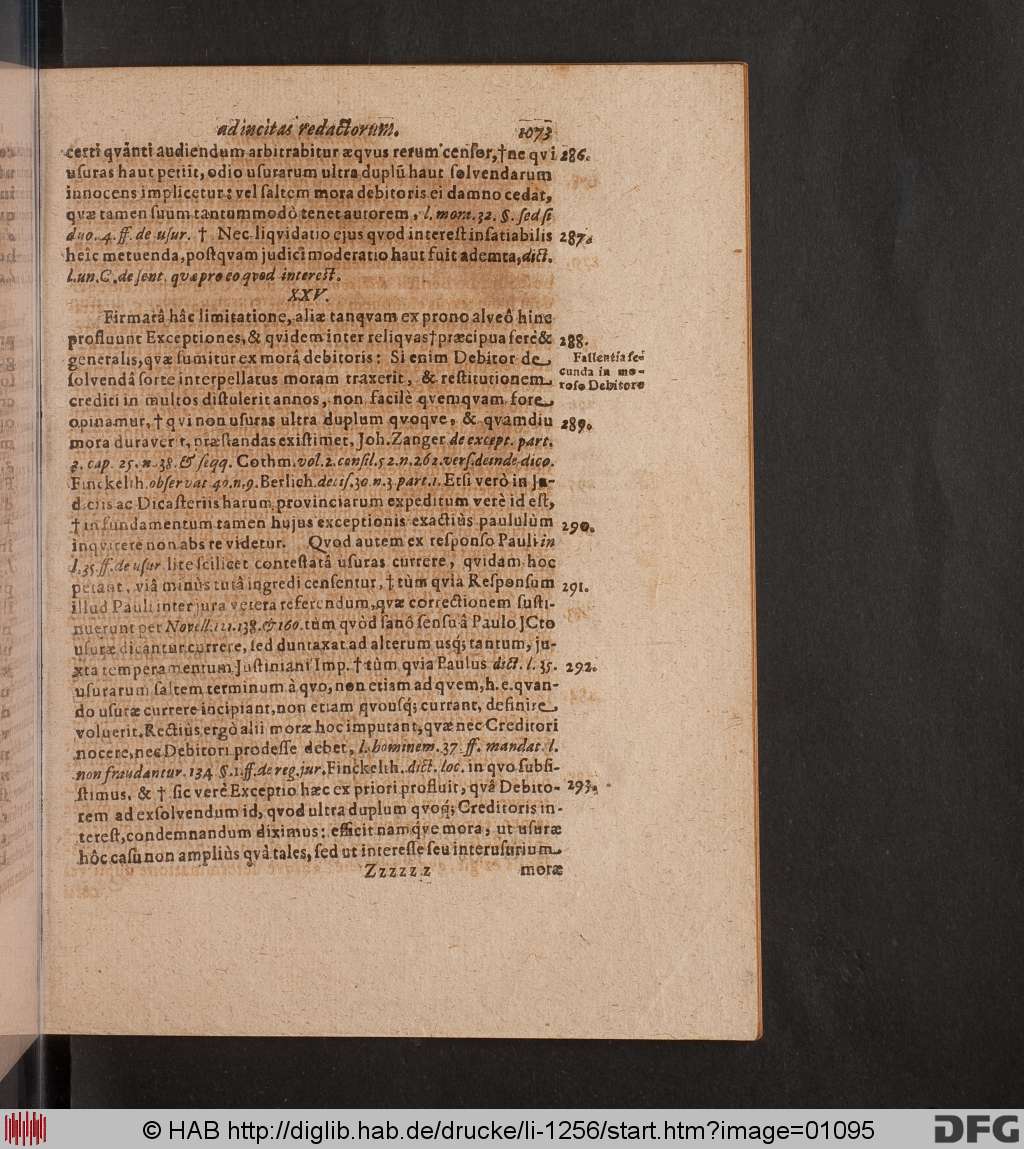 ad incitas redactorum. 1073
certi qvânti audiendum arbitrabitur æqvus rerum cenſor, † ne qvi 286.
uſuras haut petiit, odio uſurarum ultra duplũ haut ſolvendarum
innocens implicetur: vel ſaltem mora debitoris ei damno cedat,
qvæ tamen ſuum tantummodò tenet autorem, l. mora. 32. §. ſed ſi
duo. 4. ff. de uſur. † Nec liqvidatio ejus qvod intereſt inſatiabilis 287.
heîc metuenda, poſtqvam judici moderatio haut fuit ademta, dict.
l. un. C. de ſent. quæ pro eo qvod intereſt.
XXV.
Firmatâ hâc limitatione, aliæ tanqvam ex prono alveô hinc
profluunt Exceptiones, & qvidem inter reliqvas † præcipua ferè & 288.
generalis, qvæ ſumitur ex morâ debitoris: Si enim Debitor de Fallentia ſe-
ſolvendâ ſorte interpellatus moram traxerit, & reſtitutionem cunda in mo-
crediti in multos diſtulerit annos, non facilè qvemqvam fore roſo Debitore
opinamur, † qvi non uſuras ultra duplum qvoqve, & qvamdiu 289.
mora duraver t, præſtandas exiſtimet, Joh. Zanger de except. part.
3. cap. 25. n. 38. & ſeqq. Cothm. vol. 2. conſil. 52. n. 262. verſ. deinde dico.
Finckelth. obſervat 40. n. 9. Berlich. deciſ. 30. n. 3. part. 1. Etſi verò in Ju-
d ciis ac Dicaſteriis harum provinciarum expeditum verè id eſt,
† in fundamentum tamen hujus exceptionis exactiùs paululùm 290.
inqvirere non abs re videtur. Qvod autem ex reſponſo Pauli in
l. 35. ff. de uſur lite ſcilicet conteſtatâ uſuras currere, qvidam hoc
petant, viâ minùs tutâ ingredi cenſentur, † tùm qvia Reſponſum 291.
illud Pauli inter jura vetera referendum, qvæ correctionem ſuſti-
nuerunt per Novell. 121. 138. & 160. tùm qvòd ſanô ſenſu â Paulo JCto
uſuræ dicantur currere, ſed duntaxat ad alterum usq; tantum, ju-
xta temperamentum Juſtiniani Imp. † tùm qvia Paulus dict. l. 35. 292.
uſurarum ſaltem terminum à qvo, non etiam ad qvem, h. e. qvan-
do uſuræ currere incipiant, non etiam qvouſq; currant, definire
voluerit. Rectiùs ergò alii moræ hoc imputant, qvæ nec Creditori
nocere, nec Debitori prodeſſe debet, l. hominem. 37. ff. mandat. l.
non fraudantur. 134 §. 1. ff. de reg. jur. Finckelth. dict. loc. in qvo ſubſi-
ſtimus, & † ſic verè Exceptio hæc ex priori profluit, qvâ Debito- 293.
rem ad exſolvendum id, qvod ultra duplum qvoq; Creditoris in-
tereſt, condemnandum diximus: efficit namqve mora, ut uſuræ
hôc caſu non ampliùs qvâ tales, ſed ut intereſſe ſeu interuſurium
Zzzzz z moræ
© HAB http://diglib.hab.de/drucke/li-1256/start.htm?image=01095 DFG